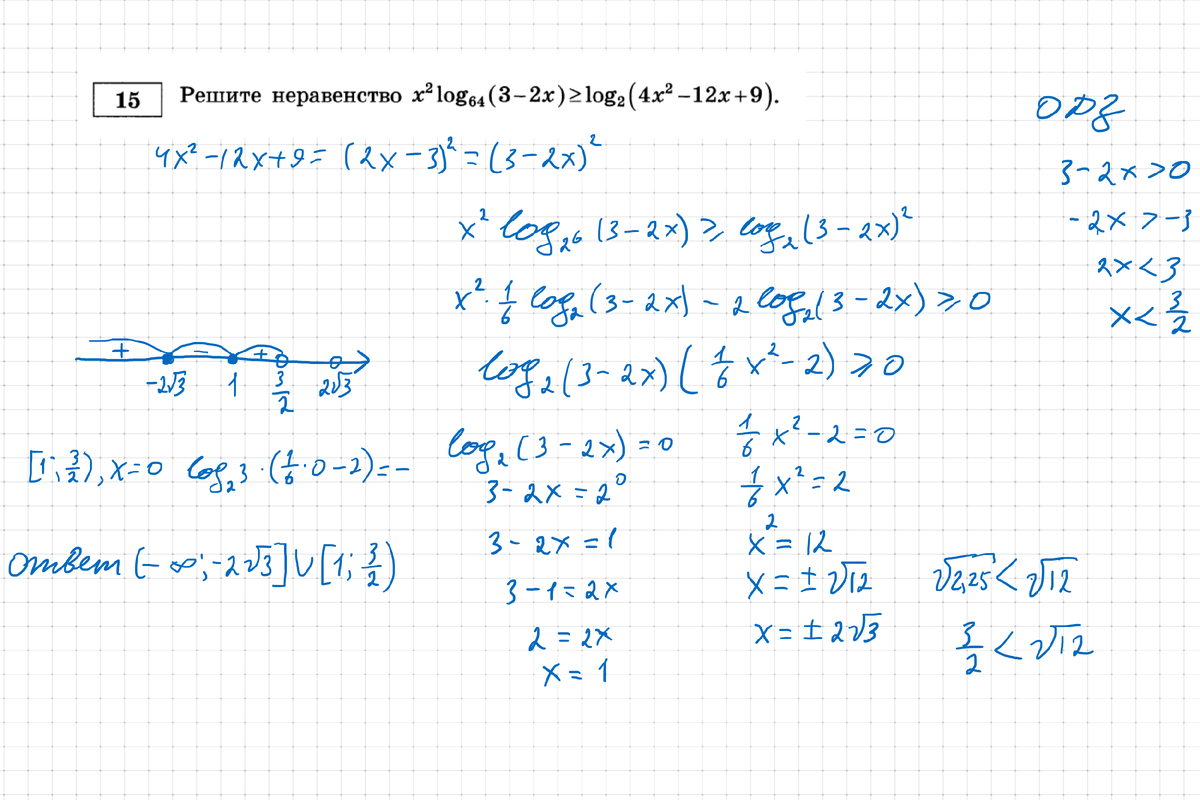 15 Решите неравенство x² log₆₄(3−2x) ≥ log₂(4x²−12x+9).
4x²−12x+9 = (2x−3)² = (3−2x)²
x² log₂⁶(3−2x) ≥ log₂(3−2x)²
x² · 1/6 log₂(3−2x) − 2 log₂(3−2x) ≥ 0
log₂(3−2x)(1/6 x² − 2) ≥ 0
ОДЗ
3−2x > 0
−2x > −3
2x < 3
x < 3/2
+ − +
−2√3 1 3/2 2√3
[1; 3/2), x=0 log₂3 · (1/6 · 0 − 2) = −
Ответ (−∞; −2√3] ∪ [1; 3/2)
log₂(3−2x) = 0
3−2x = 2⁰
3−2x = 1
3−1 = 2x
2 = 2x
x = 1
1/6 x² − 2 = 0
1/6 x² = 2
x² = 12
x = ±√12
x = ±2√3
√2,25 < √12
3/2 < √12